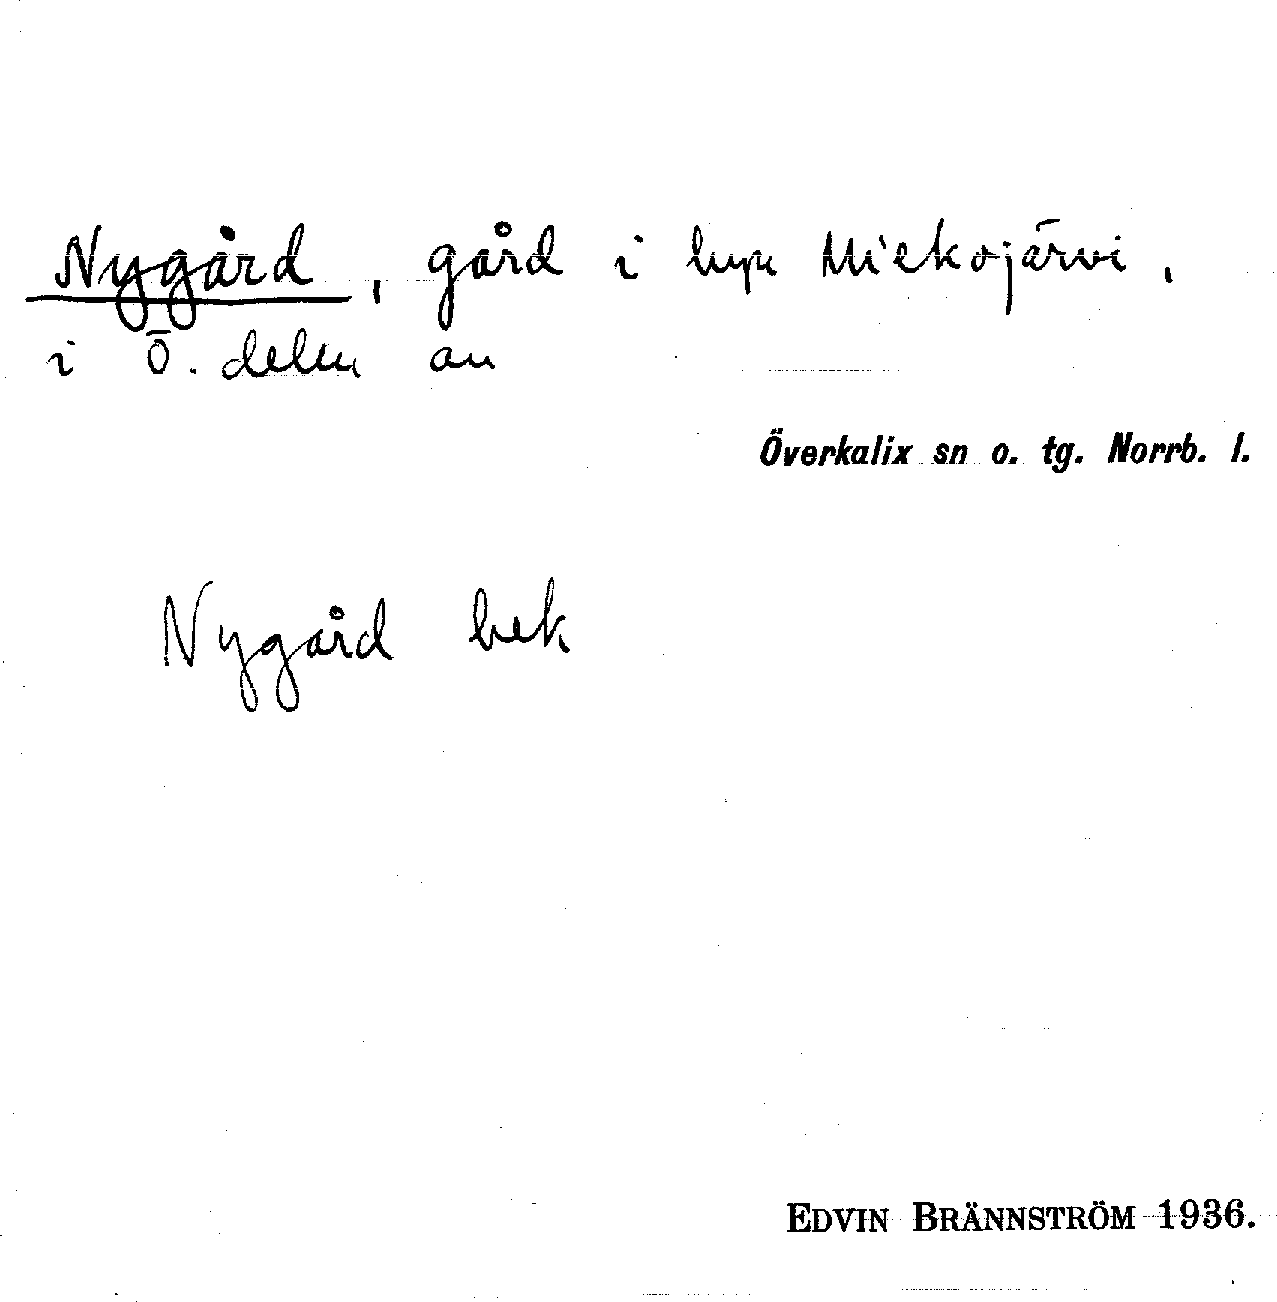 Nygård, gård i byn Miekojärvi,
i Ö. delen av
Överkalix sn o. tg. Norrb. l.
Nygård bek
EDVIN BRÄNNSTRÖM 1936.